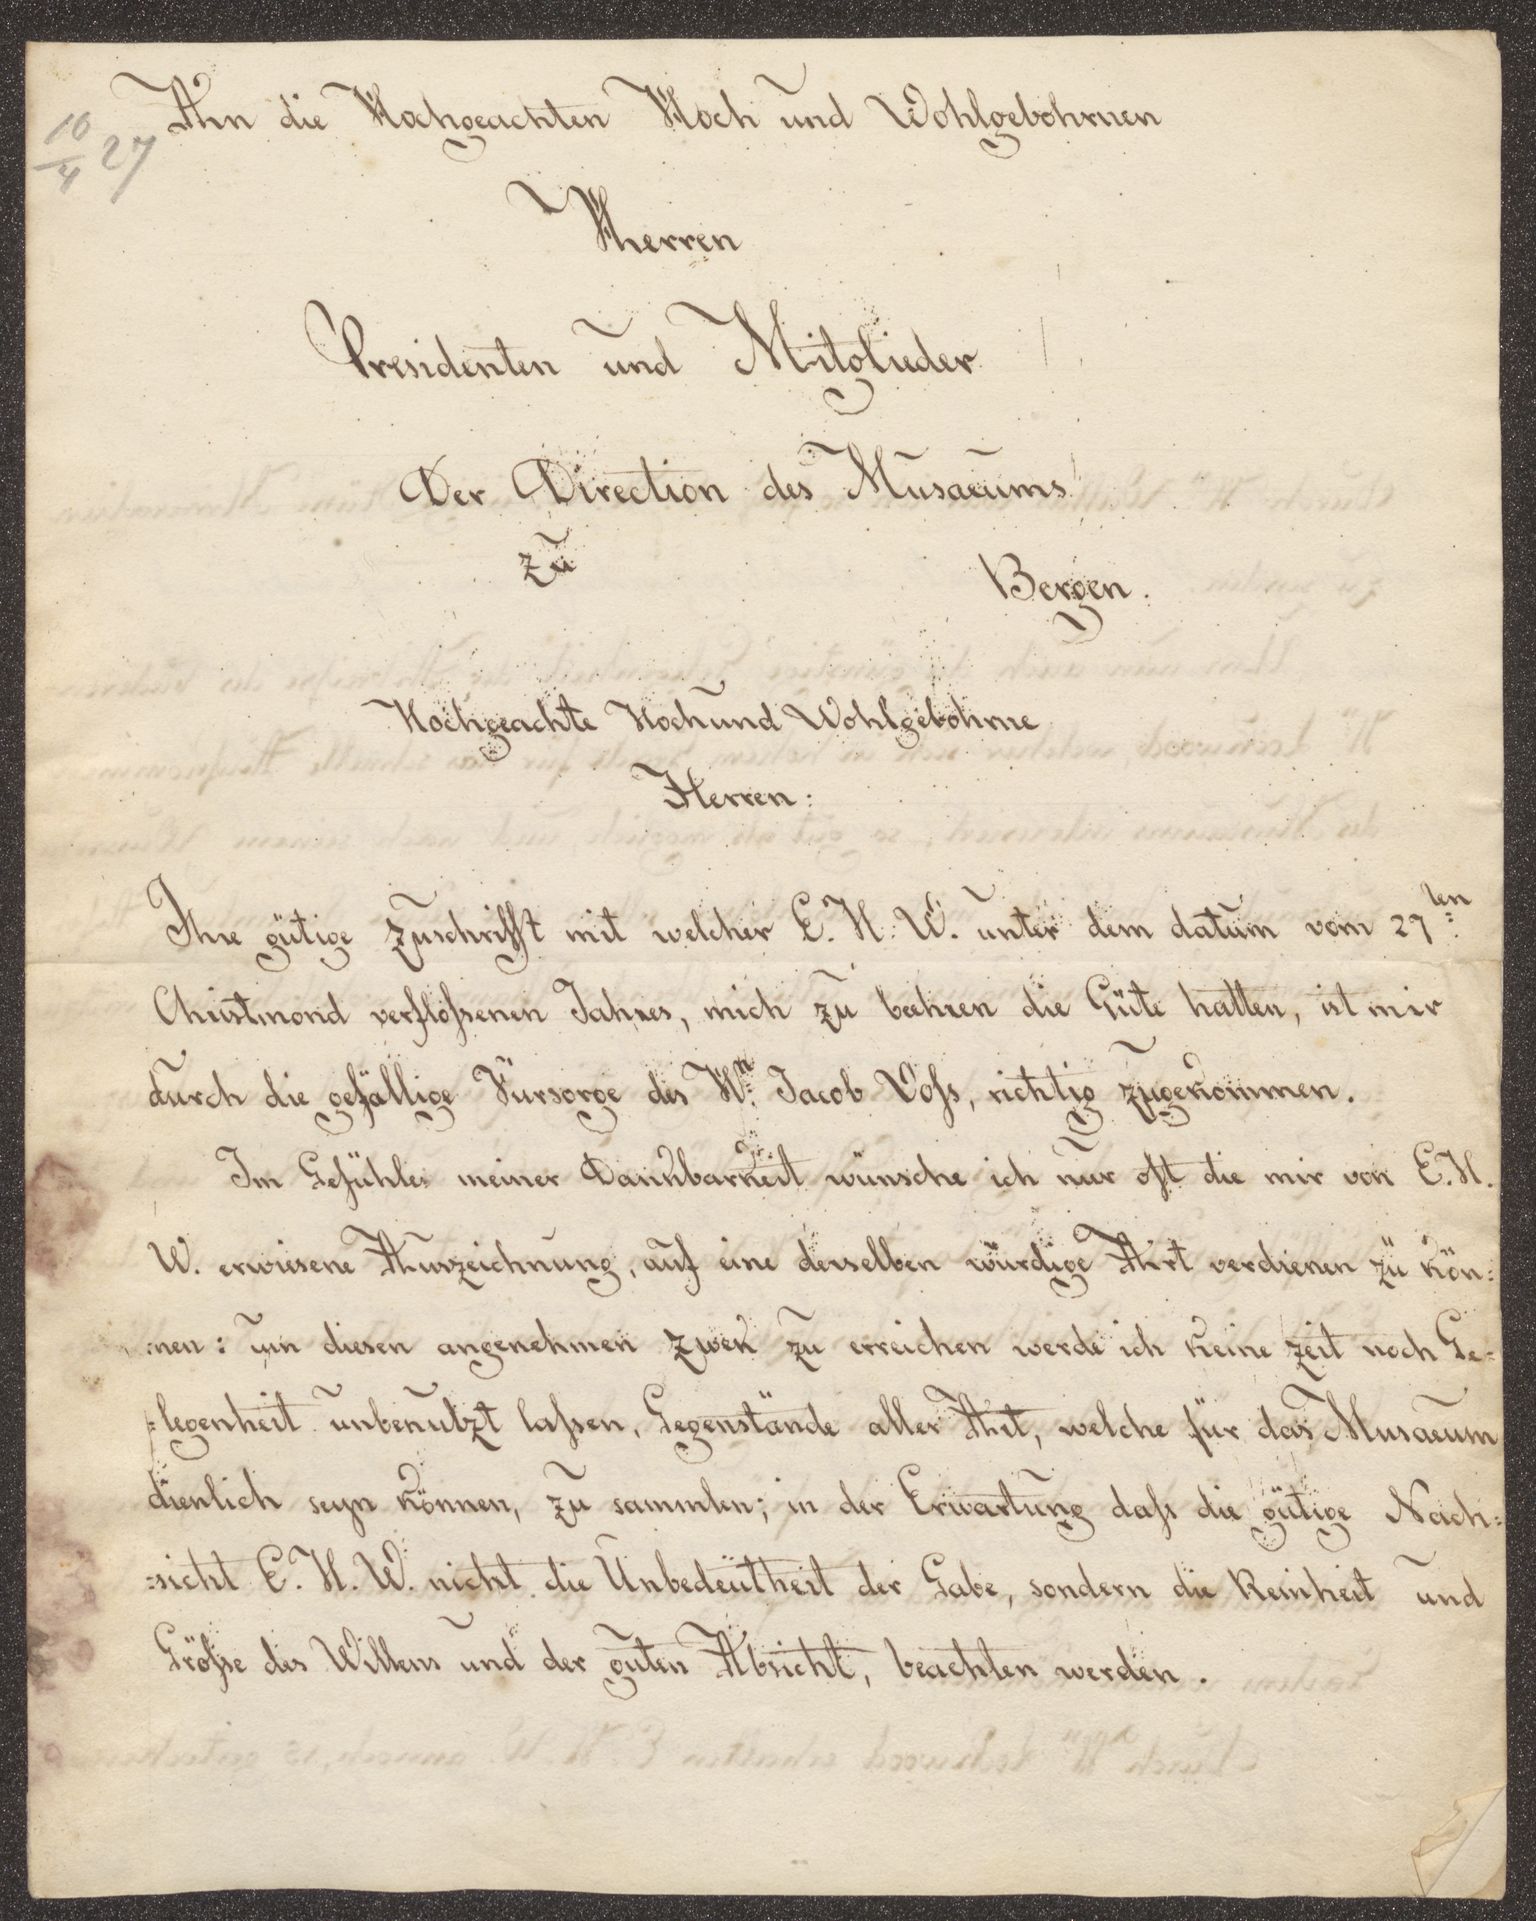 10/4 27
An die Hochgeachten Hoch und Wohlgebohrnen
Herren
Presidenten und Mitglieder
Der Direction des Musaeums
zu Bergen.
Hochgeachte Hoch und Wohlgebohrne
Herren:
Ihre gütige Zuschrifft mit welcher E. H. W. unter dem datum vom 27ten
Christmond verfloßenen Jahres, mich zu beehren die Güte hatten, ist mir
durch die gefällige Fürsorge des Hn. Jacob Voss, richtig zugekommen.
Im Gefühle meiner Dankbarkeit wünsche ich nur oft die mir von E. H.
W. erwiesene Auszeichnung, auf eine derselben würdige Art verdienen zu kön=
nen: um diesen angenehmen Zwek zu erreichen werde ich keine Zeit noch Ge=
=legenheit unbenutzt laßen, Gegenstände aller Art, welche für das Musaeum
dienlich seyn können, zu sammlen; in der Erwartung daß die gütige Nach=
=sicht E. H. W. nicht die Unbedeutheit der Gabe, sondern die Reinheit und
Größe des Willens und der guten Absicht, beachten werden.